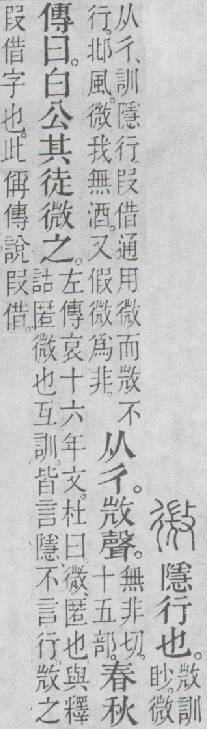 微
隱行也。
𢼸訓
眇。微
从彳、訓隱行。叚借通用微而𢼸不
行。邶風。微我無酒。又假微爲非。
从彳。𢼸聲。
無非切。
十五部。
春秋
傳曰。白公其徒微之。
左傳哀十六年文。杜曰。微、匿也。與釋
詁匿、微也互訓。皆言隱不言行。𢼸之
叚借字也。此偁傳說叚借。